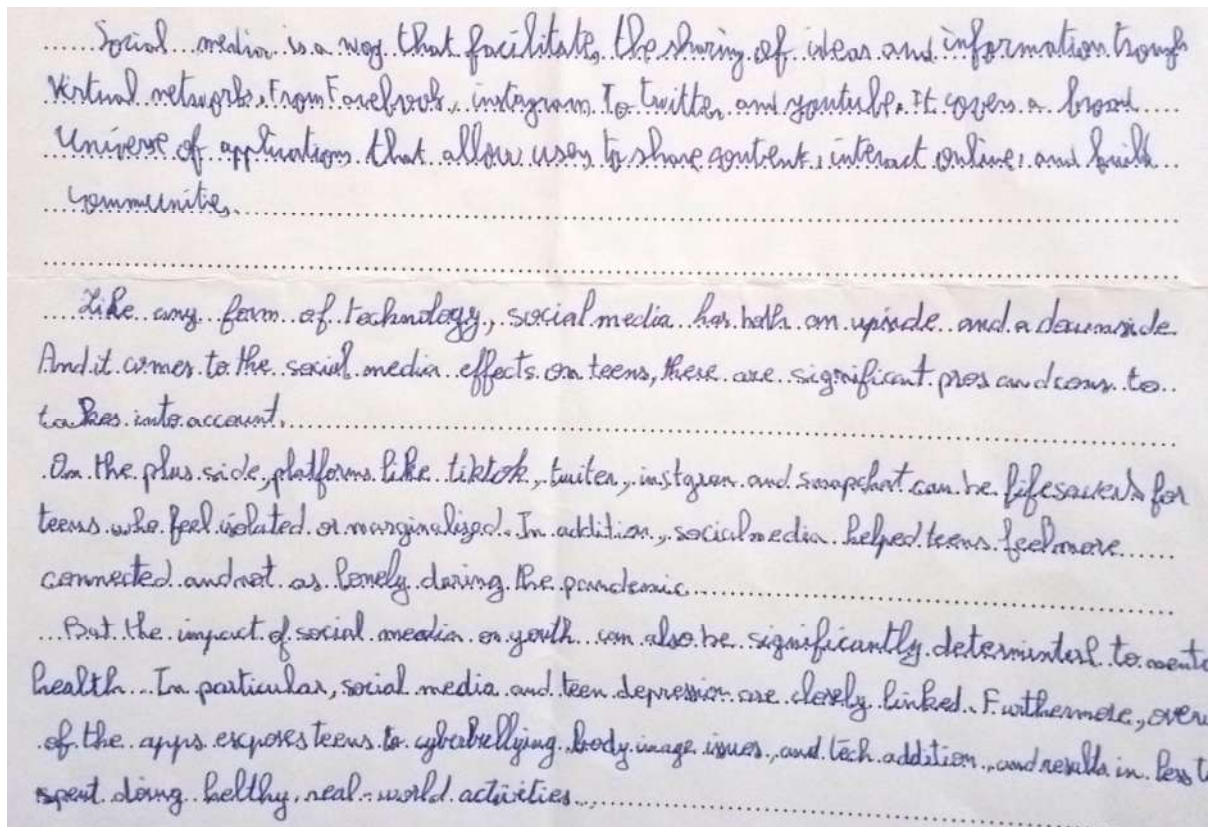 Social media is a way that facilitate the sharing of ideas and information trough
Virtual networks, From Facebook, instagram To twitter and youtube. It covers a broad
Universe of applications that allow users to share content, interact online, and build
communities.
Like any form of technology, social media has both an upside and a downside
And it comes to the social media effects on teens, there are significant pros and cons to
takes into account.
On the plus side, platforms like tiktok, twiter, instgram and snapchat can be lifesavers for
teens who feel isolated or marginalized. In addition, social media helped teens feel more
connected and not as lonely daring the pandemic
But the impact of social meadia on youth can also be significantly determintal to menta
health. In particular, social media and teen depression are closely linked. Furthermore, over
of the apps exposes teens to cyberbullying, body image issues, and tech addition, and results in less t
spent doing helthy, real-world activities.